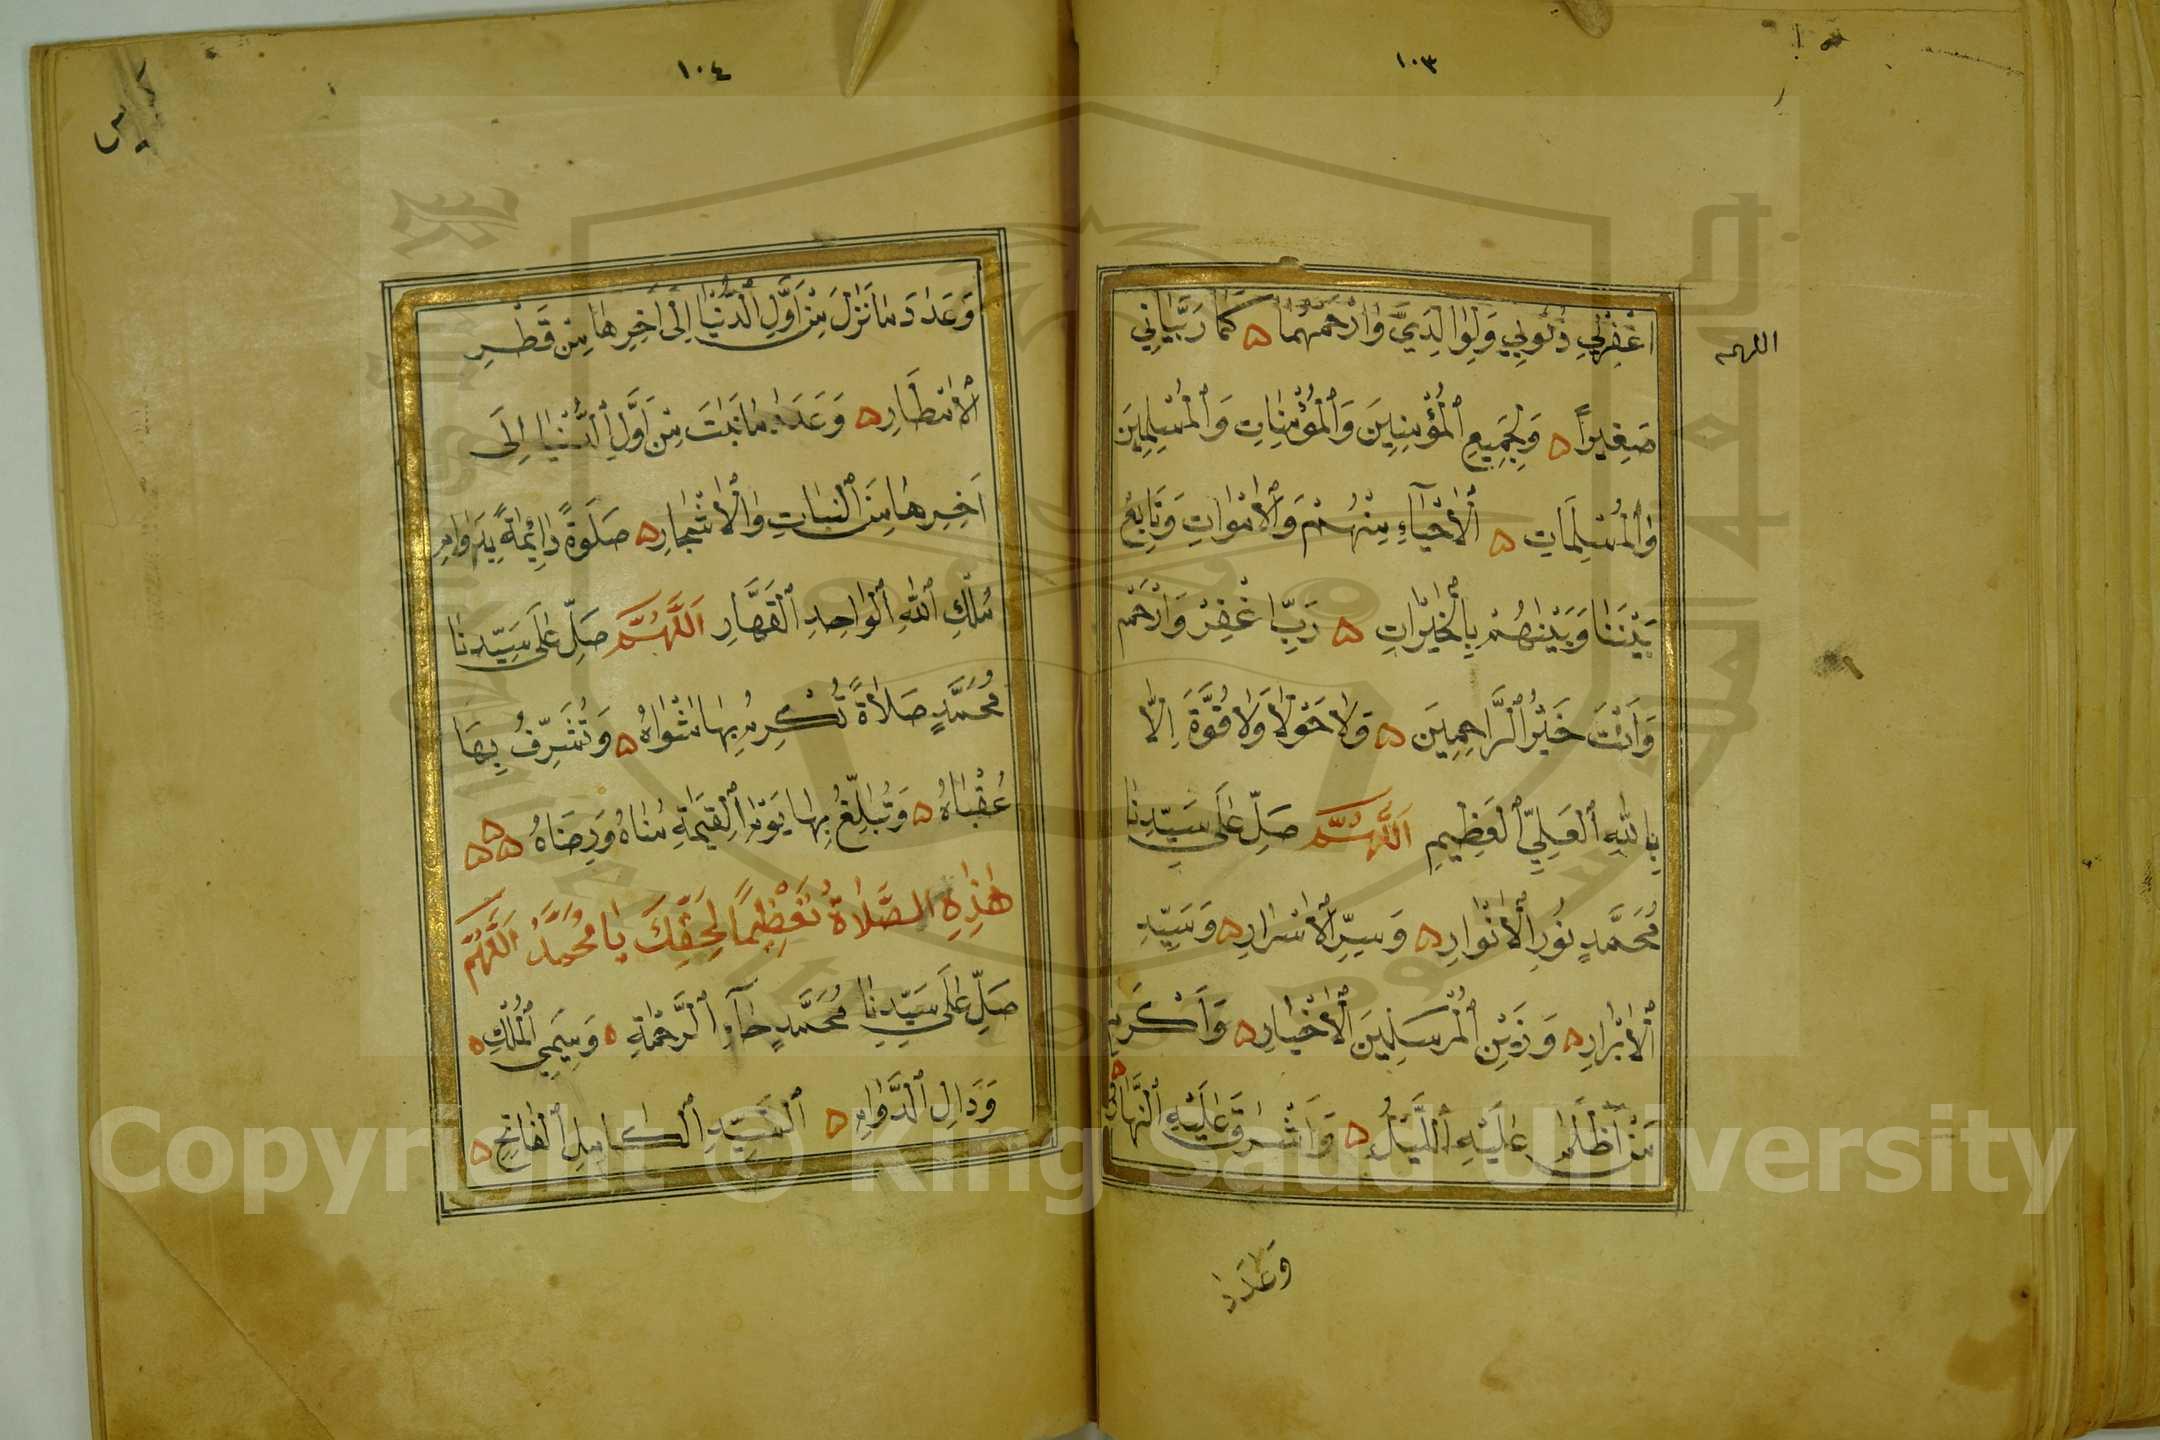 ١٠٣
اللهم
اغْفِرْلِي ذُنُوبِي وَلِوَالِدَيَّ وَارْحَمْهُمَا ۵ كَمَا رَبَّيَانِي
صَغِيراً ۵ وَلِجَمِيعِ ٱلْمُؤْمِنِينَ وَٱلْمُؤْمِنَاتِ وَٱلْمُسْلِمِينَ
وَٱلْمُسْلِمَاتِ ۵ ٱلْأَحْيَاءِ مِنْهُمْ وَٱلْأَمْوَاتِ وَتَابِعْ
بَيْنَنَا وَبَيْنَهُمْ بِالْخَيْرَاتِ ۵ رَبِّ اغْفِرْ وَارْحَمْ
وَأَنْتَ خَيْرُ ٱلرَّاحِمِينَ ۵ وَلَا حَوْلَ وَلَا قُوَّةَ اِلَّا
بِاللّٰهِ ٱلْعَلِيِّ ٱلْعَظِيمِ اَللّٰهُمَّ صَلِّ عَلَى سَيِّدِنَا
مُحَمَّدٍ نُورِ ٱلْأَنْوَارِ ۵ وَسِرِّ ٱلْأَسْرَارِ ۵ وَسَيِّدِ
ٱلْأَبْرَارِ ۵ وَزَيْنِ ٱلْمُرْسَلِينَ ٱلْأَخْيَارِ ۵ وَأَكْرَمِ
مَنْ أَظْلَمَ عَلَيْهِ ٱللَّيْلُ ۵ وَأَشْرَقَ عَلَيْهِ ٱلنَّهَارُ ۵
وَعَدَدَ
١٠٤
وَعَدَدَ مَا نَزَلَ مِنْ اَوَّلِ ٱلدُّنْيَا اِلَى اٰخِرِهَا مِنْ قَطْرِ
ٱلْأَمْطَارِ ۵ وَعَدَدَ مَا نَبَتَ مِنْ اَوَّلِ ٱلدُّنْيَا اِلَى
اٰخِرِهَا مِنَ ٱلنَّبَاتِ وَٱلْأَشْجَارِ ۵ صَلَوةً دَائِمَةً بِدَوَامِ
مُلْكِ ٱللّٰهِ ٱلْوَاحِدِ ٱلْقَهَّارِ اَللّٰهُمَّ صَلِّ عَلَى سَيِّدِنَا
مُحَمَّدٍ صَلَاةً تُكْرِمُ بِهَا مَثْوَاهُ ۵ وَتُشَرِّفُ بِهَا
عُقْبَاهُ ۵ وَتُبَلِّغُ بِهَا يَوْمَ ٱلْقِيٰمَةِ مُنَاهُ وَرِضَاهُ ۵۵۵
هٰذِهِ الصَّلَاةُ تَعْظِيمًا لِحَقِّكَ يَا مُحَمَّدُ اَللّٰهُمَّ
صَلِّ عَلَى سَيِّدِنَا مُحَمَّدٍ حَاءِ ٱلرَّحْمَةِ ۵ وَمِيمَيِ ٱلْمُلْكِ ۵
وَدَالِ ٱلدَّوَامِ ۵ ٱلسَّيِّدِ ٱلْكَامِلِ ٱلْفَاتِحِ ۵
Copyright © King Saud University